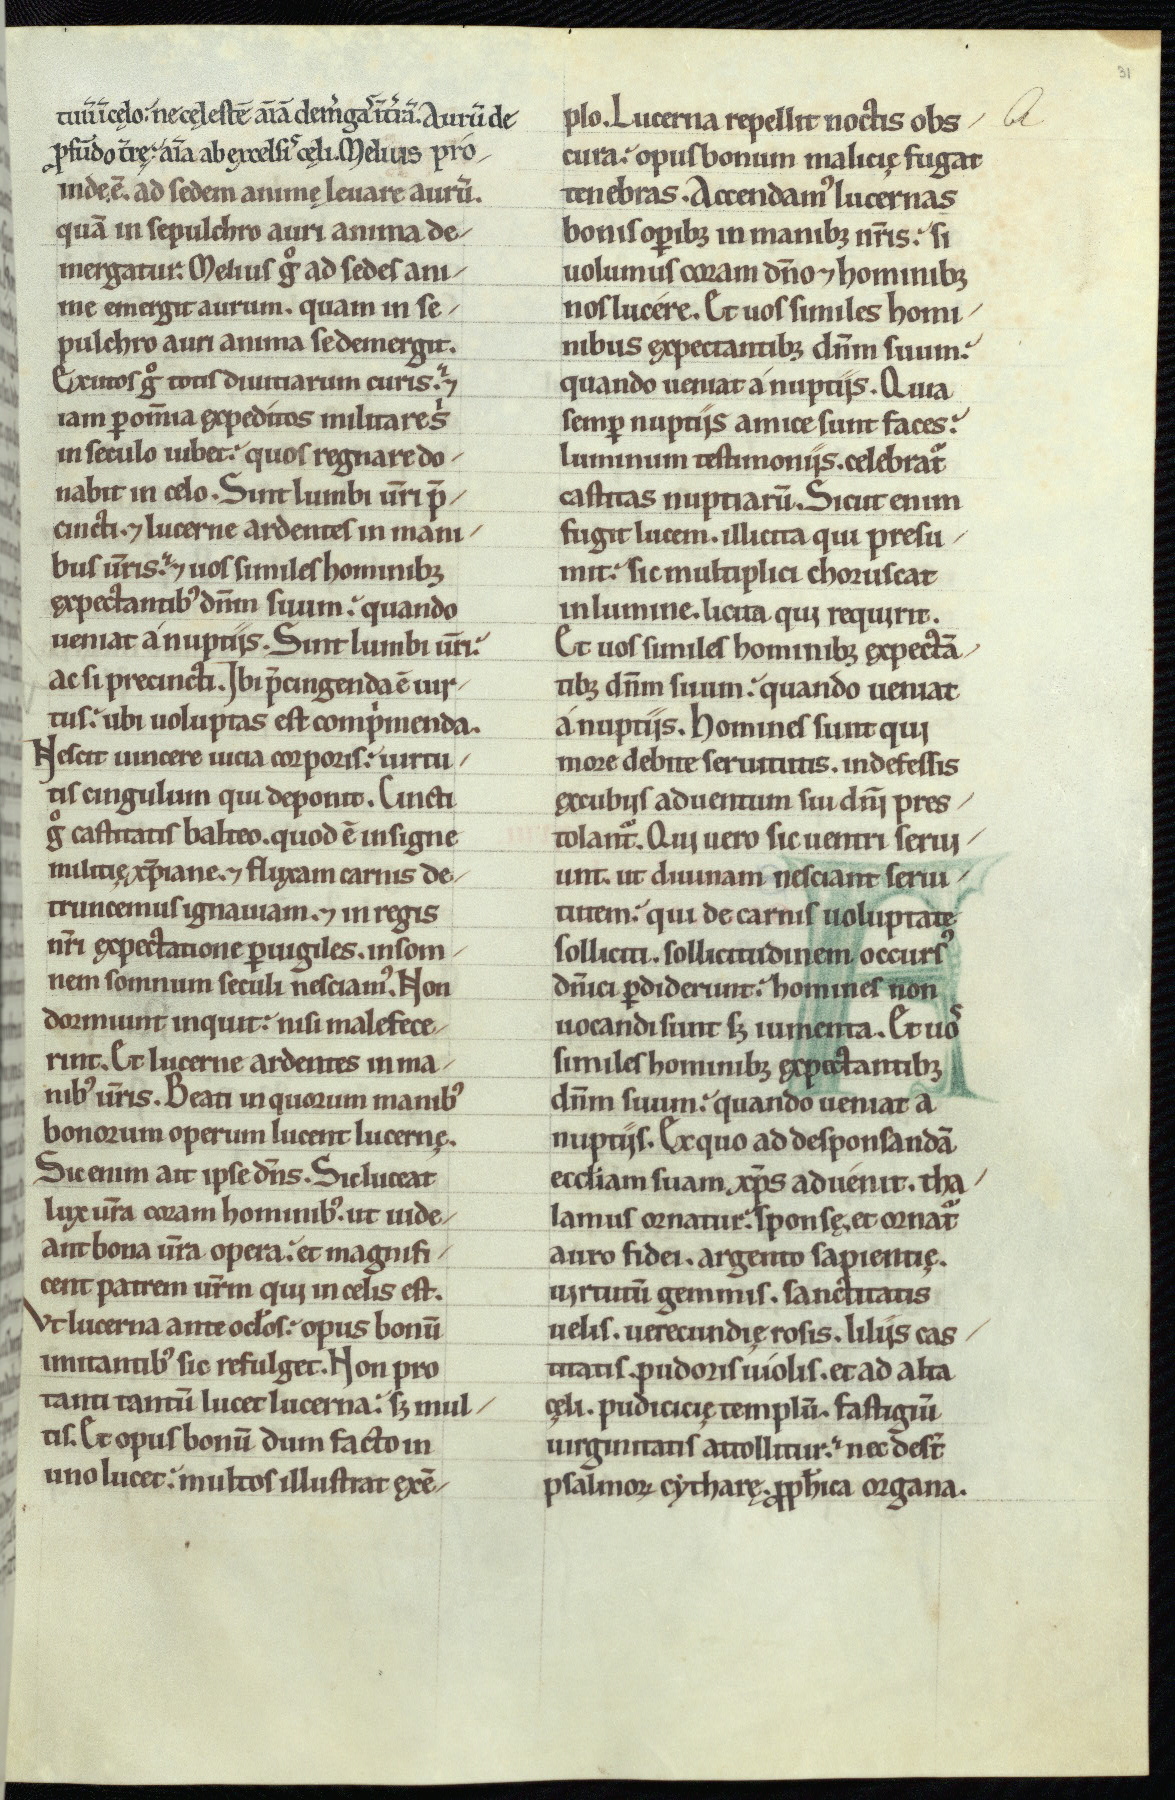 31
tuū ī cęlo: ne cęlestē aīā dem̄gas ī t̄ra. Aurū de
ꝓfūdo t̄rę: aīa ab excelsis cęli. Melius pro-
inde ē. ad sedem animę leuare aurū.
quā in sepulchro auri anima de-
mergatur. Melius gͦ ad sedes ani-
me emergit aurum. quam in se-
pulchro auri anima se demergit.
Exutos gͦ totis diuitiarum curis: ⁊
iam ꝑ om̄ia expeditos militare s̄
in seculo iubet: quos regnare do-
nabit in celo. Sint lumbi ur̄i p̄-
cincti. ⁊ lucerne ardentes in mani-
bus ur̄is: ⁊ uos similes hominibꝫ
expectantibꝰ dn̄m suum: quando
ueniat á nuptijs. Sint lumbi ur̄i:
ac si precincti. Ibi p̄cingenda ē uir-
tus: ubi uoluptas est comp̍menda.
Nescit uincere uicia corporis: uirtu-
tis cingulum qui deponit. Cincti
gͦ castitatis balteo. quod ē insigne
militię xp̄iane. ⁊ fluxam carnis de-
truncemus ignauiam. ⁊ in regis
nr̄i expectatione ꝑuigiles. insom-
nem somnum seculi nesciamꝰ. Non
dormiunt inquit: nisi malefece-
rint. Et lucerne ardentes in ma-
nibꝰ ur̄is. Beati in quorum manibꝰ
bonorum operum lucent lucernę.
Sic enim ait ipse dn̄s. Sic luceat
lux ur̄a coram hominibꝰ. ut uide-
ant bona ur̄a opera: et magnifi-
cent patrem ur̄m qui in celis est.
Vt lucerna ante ocłos: opus bonū
imitantibꝰ sic refulget. Non pro
tanti tantū lucet lucerna: sꝫ mul-
tis. Et opus bonū dum facto in
uno lucet: multos illustrat exē-
plo. Lucerna repellit noctis obs-
cura: opus bonum malicię fugat
tenebras. Accendamꝰ lucernas
bonis oꝑibꝫ in manibꝫ nr̄is: si
uolumus coram dn̄o ⁊ hominibꝫ
nos lucére. Et uos similes homi-
nibus expectantibꝫ dn̄m suum:
quando ueniat á nuptijs. Quia
semꝑ nuptijs amice sunt faces:
luminum testimonijs. celebrat᷑
castitas nuptiarū. Sicut enim
fugit lucem. illicita qui presu-
mit: sic multiplici choruscat
in lumine. licita qui requirit.
Et uos similes hominibꝫ expectā-
tibꝫ dn̄m suum: quando ueniat
á nuptijs. Homines sunt qui
more debite seruitutis. indefessis
excubijs aduentum sui dn̄i pres-
tolant᷑. Qui uero sic uentri serui-
unt. ut diuinam nesciant serui-
tutem: qui de carnis uoluptate
solliciti. sollicitudinem occursꝰ
dn̄ici ꝑdiderunt: homines non
uocandi sunt sꝫ iumenta. Et uos
similes hominibꝫ expectantibꝫ
dn̄m suum: quando ueniat a
nuptijs. Ex quo ad desponsandā
eccłiam suam xp̄s aduénit. tha-
lamus ornatur: sponsę, et ornat᷑
auro fidei. argento sapientię.
uirtutū gemmis. sanctitatis
uelis. uerecundię rosis. lilijs cas-
titatis. pudoris uiolis. et ad alta
cęli. pudicicię templū. fastigiū
uirginitatis attollitur: nec des̄t
psalmoꝝ cytharę. ꝓpħica organa.